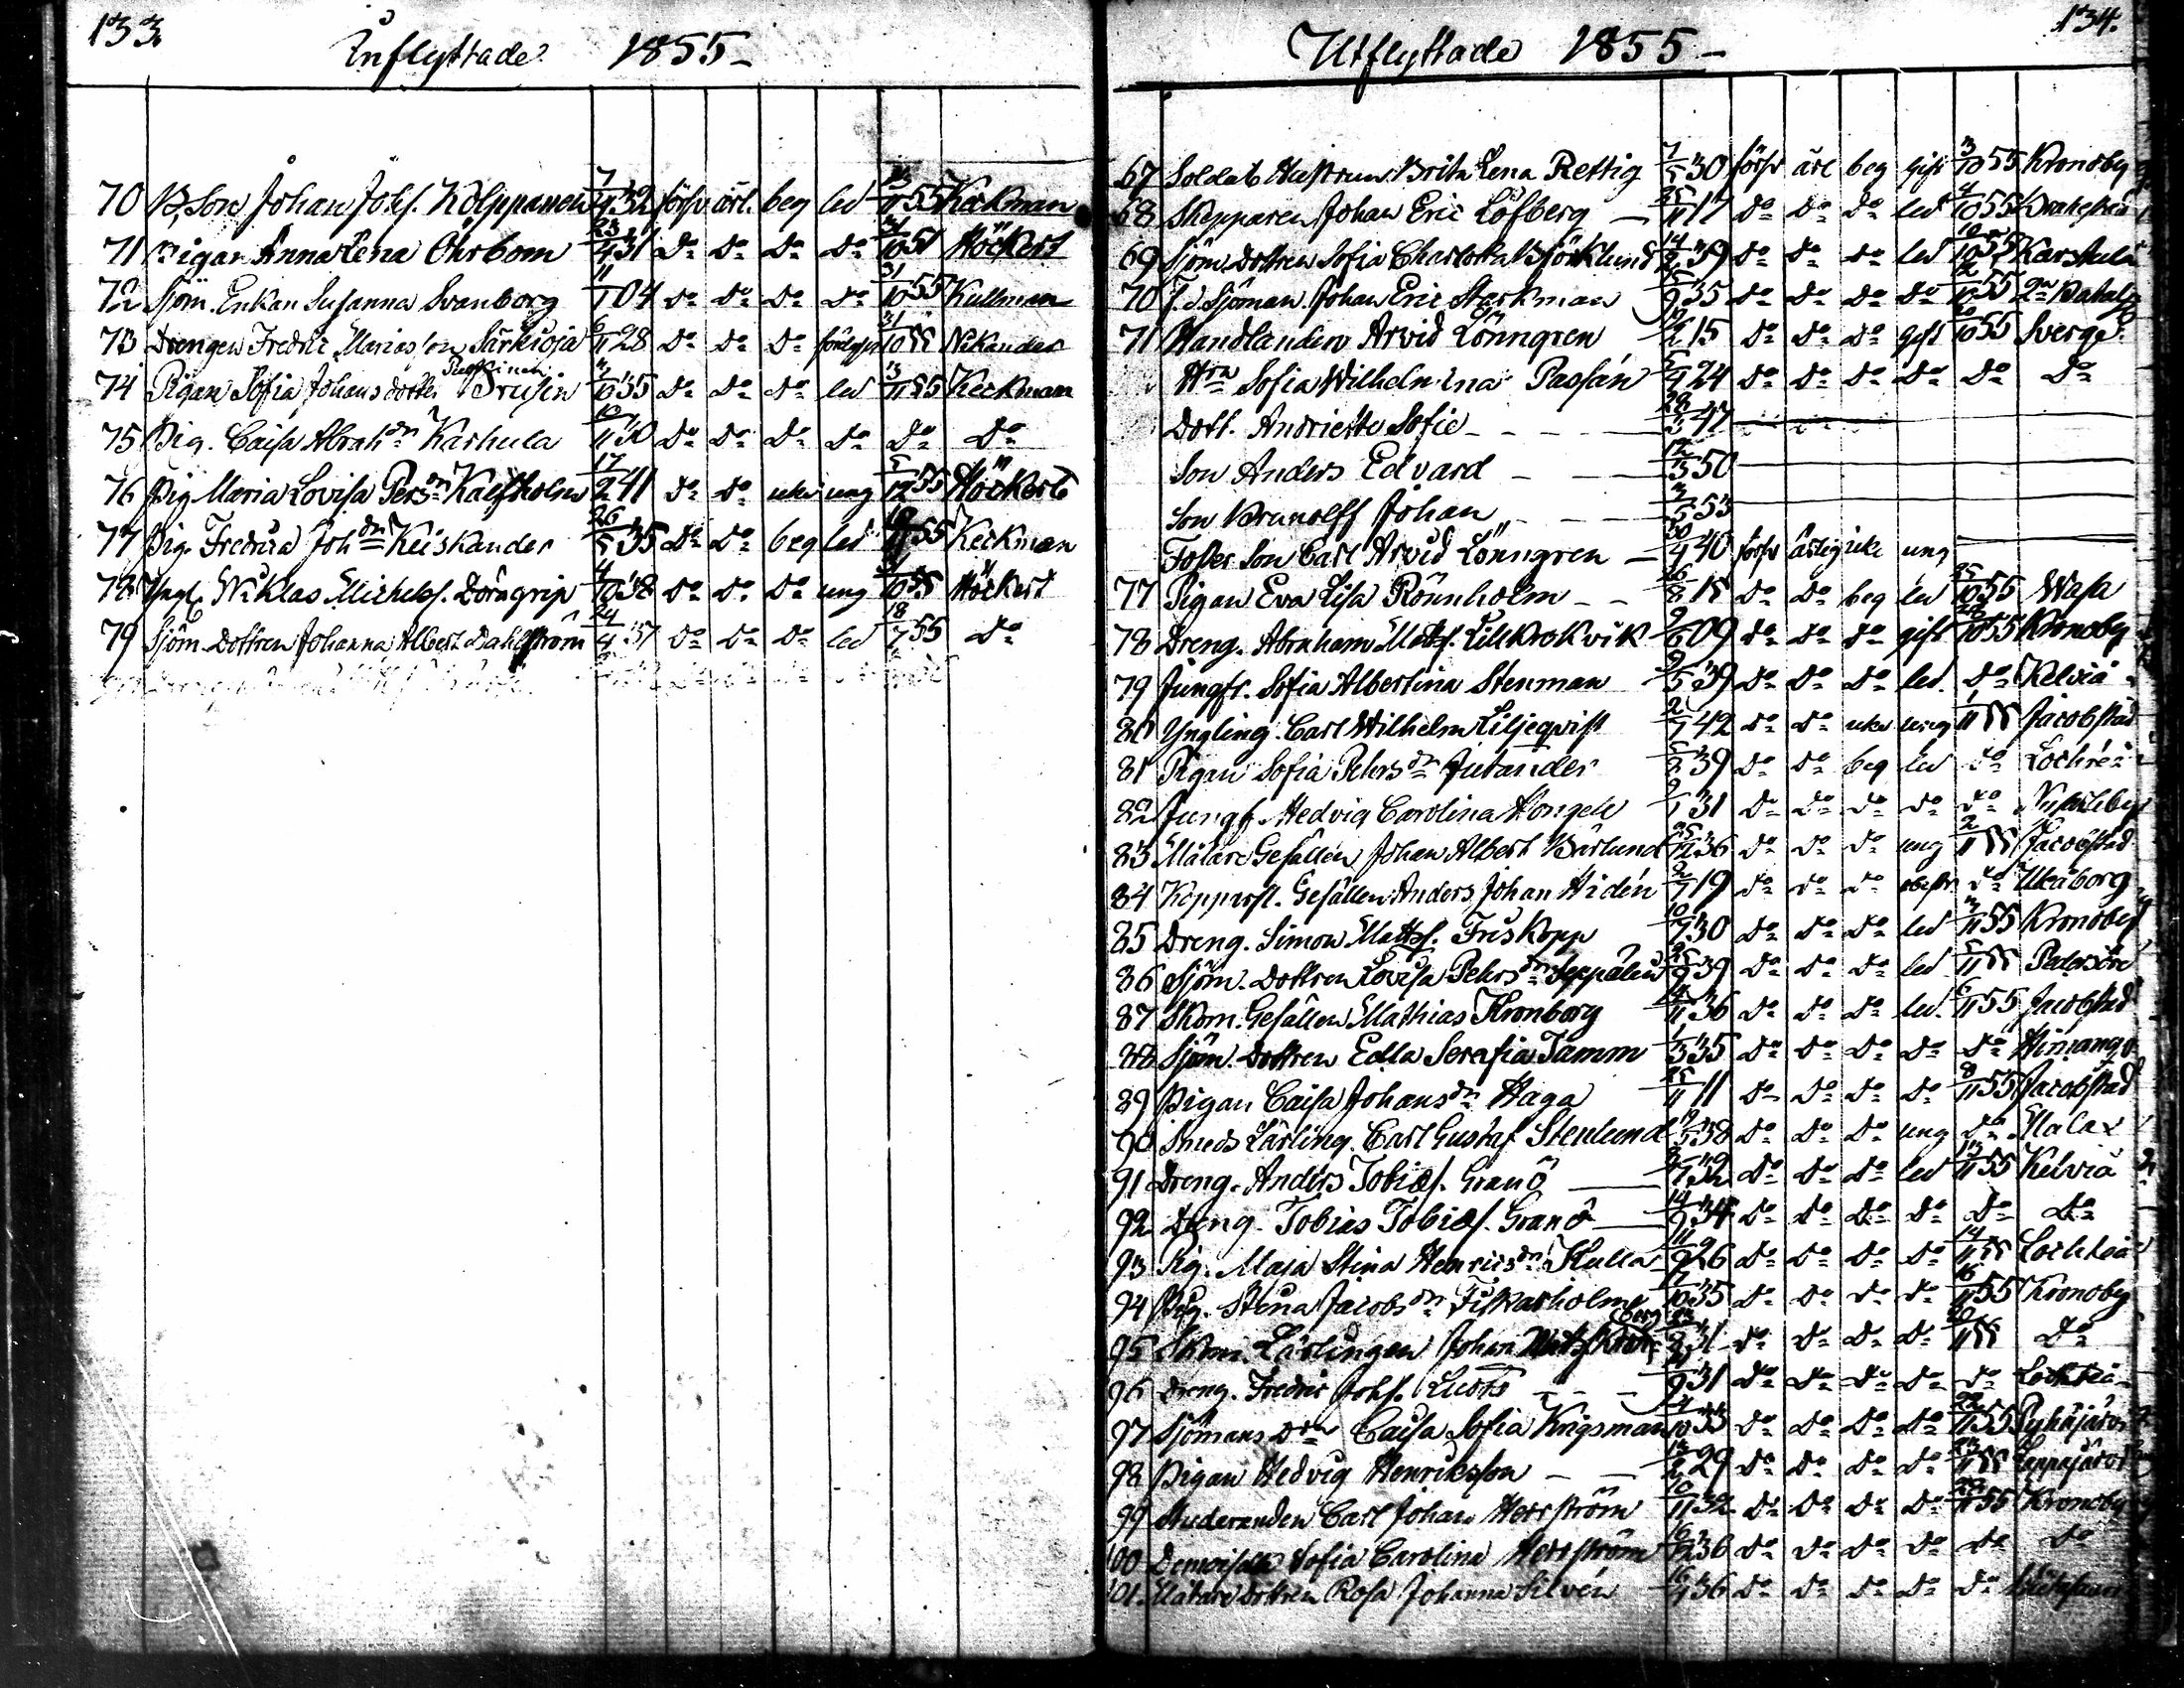 133.
Inflyttade 1855 –
70 B. Son Johan Johs. Kolppanen 7/4 32 försv ärl. beg led 55 Keckman
71 Pigan Anna Lena Öhrbom 23/4 31 Do Do Do Do 51 Höckert
72 Sjöm. Enkan Susanna Svanborg 11/1 04 Do Do Do Do 31/10 55 Kullman
73 Drengen Fredric Mariasson Särkioja 6/11 28 Do Do Do 31/10 55 Nikander
74 Pigan Sofia Johansdotter Trusin 35 Do Do Do led 3/11 55 Keckman
75 Pig. Caisa Abrah.dr Karhula 30 Do Do Do Do Do Do
76 Pig. Maria Lovisa Persdr Kalfholm 17/2 41 Do Do ung 5/12 55 Höckert
77 Pig. Fredrica Joh.dr Keiskander 26/5 35 Do Do beg led 55 Keckman
78 Yngl. Niklas Michelss. Dörngrip 4/10 38 Do Do Do ung 55 Höckert
79 Sjöm. Dottren Johanna Albert. Dahlström 24/4 37 Do Do Do led 18/7 55 Do
134.
Utflyttade 1855 –
67 Soldats Hustrun Brita Lena Rettig 7/5 30 försv ärl beg gift 3/10 55 Kronoby
68 Skepparen Johan Eric Löfberg – 25/11 17 Do Do Do led 4/10 55 Brahestad
69 Sjöm. Dottren Sofia Charlotta Björklund 14/2 39 Do Do Do led 10/10 55 Karstula
70 f.d. Sjöman Johan Eric Starkman 35 Do Do Do Do 12/10 55
71 Handlanden Arvid Lönngren 15 Do Do Do gift 55 Sverge
Hru Sofia Wilhelmina Passén 5/4 24 Do Do Do Do Do Do
Dott. Andriette Sofie – – – 47
Son Anders Edvard – – 50
Son Brunolff Johan – – – 53
Foster Son Carl Arvid Lönngren – 30/4 40 försv ärlig ung
77 Pigan Eva Lisa Rönnholm – – 26/8 15 Do Do beg led 25/10 55 Wasa
78 Dreng. Abraham Matss. Lillkrokvik 9/6 09 Do Do Do gift 55 Kronoby
79 Jungfr. Sofia Albertina Stenman 9/5 39 Do Do Do led. Do Kelviå
80 Yngling. Carl Wilhelm Liljeqvist 2/7 42 Do Do ung 1/11 55 Jacobstad
81 Pigan Sofia Pehrsdr Jutander 39 Do Do beg led Do Lochteå
82 Jungf. Hedvig Carolina Hongell 31 Do Do Do Do Do Nykarleby
83 Målare Gesällen Johan Albert Bärlund 25/12 36 Do Do Do ung 2/11 55 Jacobstad
84 Kopparsl. Gesällen Anders Johan Hidén 2/7 19 Do Do Do Do Uleåborg
85 Dreng. Simon Matss. Friskopp 10/7 30 Do Do Do led 3/11 55 Kronoby
86 Sjöm. Dottren Lovisa Pehrsdr Seppälin 25/9 39 Do Do Do led 5/11 55 Pedersöre
87 Skom. Gesällen Mathias Kronborg 14/11 36 Do Do Do led. 6/11 55 Jacobstad
88 Sjöm. Dottren Edla Serafia Tamm 1/3 35 Do Do Do Do Do Himango
89 Pigan Caisa Johansdr Haga 25/11 11 Do Do Do Do 8/11 55 Jacobstad
90 Smeds Lärling. Carl Gustaf Stenlund 19/5 38 Do Do Do ung Do Malax
91 Dreng. Anders Tobiæs. Granö – 32 Do Do Do led 13/11 55 Kelviå
92 Dreng. Tobias Tobiæs. Granö – 14/9 34 Do Do Do Do Do Do
93 Pig. Maja Stina Henricsdr Kulla 11/9 26 Do Do Do Do 14/11 55 Lochteå
94 Pig. Stina Jacobsdr Fiskarholm 17/10 35 Do Do Do Do 16/11 55 Kronoby
95 Skom. Lärlingen Johan 31 Do Do Do Do 20/11 55 Do
96 Dreng. Fredric Johs. – – 31 Do Do Do Do Do Lochteå
97 Sjömans Dtr Caisa Sofia Krigsman 4/10 33 Do Do Do Do 22/11 55 Pyhäjärvi
98 Pigan Hedvig Henriksson – – 29 Do Do Do Do 55 Lappajärvi
99 Studeranden Carl Johan Herrström 10/11 32 Do Do Do Do 55 Kronoby
100 Demoiselle Sofia Carolina Herrström 6/12 36 Do Do Do Do Do Do
101. Målare Dottren Rosa Johanna Silvén 16/9 36 Do Do Do Do Do